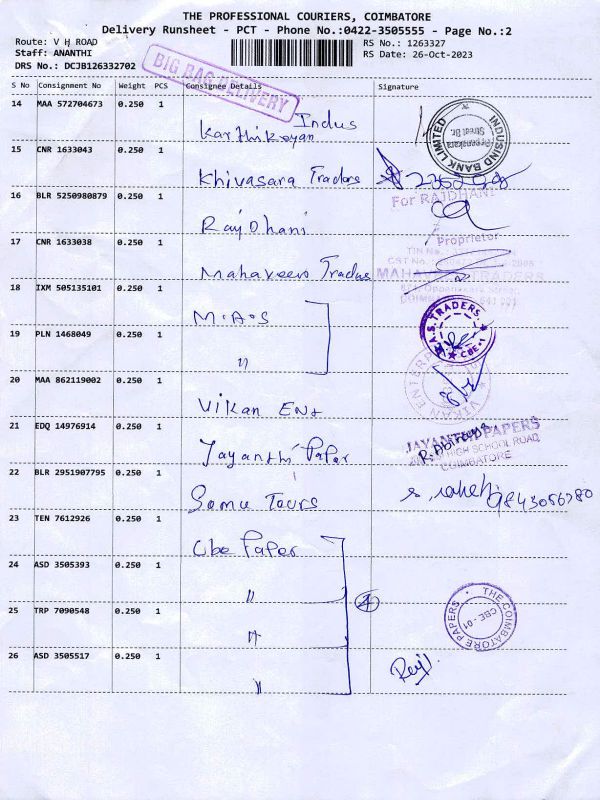 THE PROFESSIONAL COURIERS, COIMBATORE
Delivery Runsheet - PCT - Phone No.:0422-3505555 - Page No.:2
Route: V H ROAD
RS No.: 1263327
Staff: ANANTHI
RS Date: 26-Oct-2023
DRS No.: DCJB126332702
BIG BAG DELIVERY
S No Consignment No Weight PCS Consignee Details Signature
14 MAA 572704673 0.250 1
Indus
Karthikeyan
INDUSIND BANK LIMITED
15 CNR 1633043 0.250 1
Khivasara Traders
16 BLR 5250980879 0.250 1
For RAJDHANI
RajDhani
Proprietor
17 CNR 1633038 0.250 1
TIN No.
CST No.
Mahaveer Tradus
MAHAVEER TRADERS
18 IXM 505135101 0.250 1
M.A.S
M.A.S. TRADERS
CBE-1
19 PLN 1468049 0.250 1
"
VIKAN ENTERPRISES
20 MAA 862119002 0.250 1
Vikan Ent
21 EDQ 14976914 0.250 1
JAYANTHI PAPERS
HIGH SCHOOL ROAD
COIMBATORE
Jayanthi Paper
22 BLR 2951907795 0.250 1
Somu Tours
9843056780
23 TEN 7612926 0.250 1
Cbe Paper
24 ASD 3505393 0.250 1
"
4
25 TRP 7090548 0.250 1
THE COIMBATORE PAPERS
CBE-01
"
26 ASD 3505517 0.250 1
"